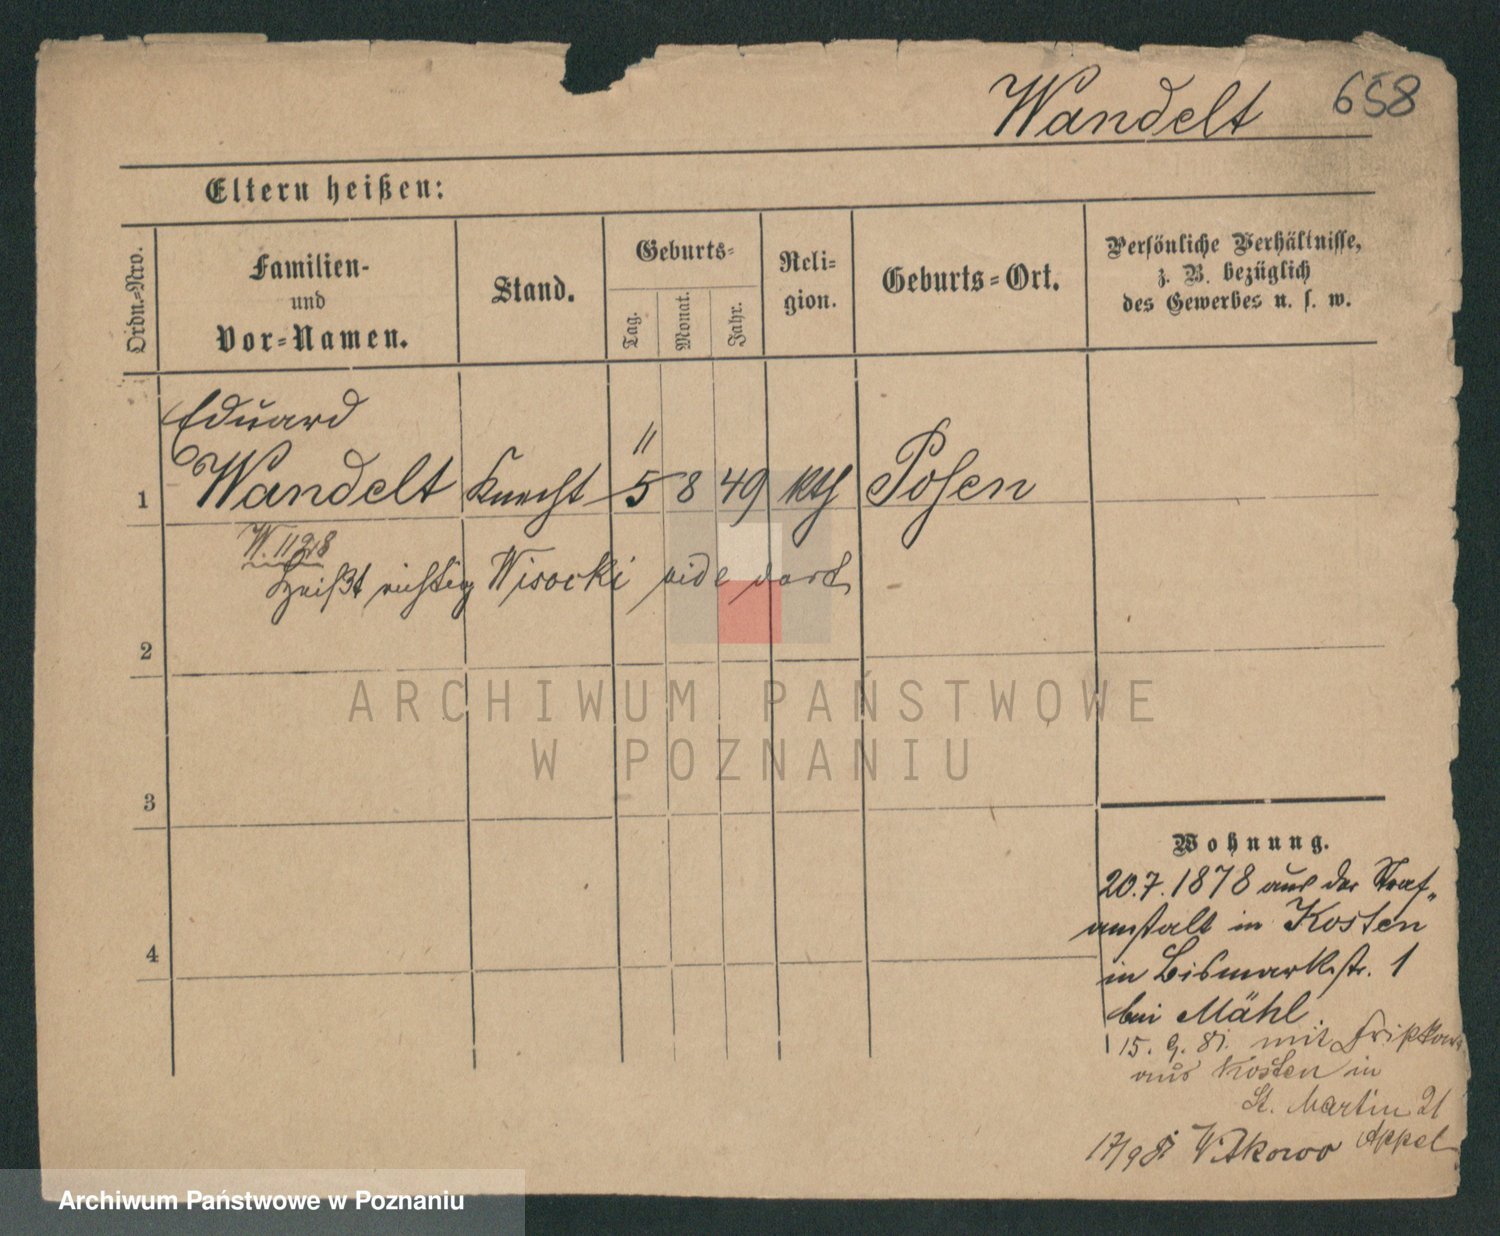 Wandelt 658
Eltern heißen:
Ordn.-Nro.
Familien-
und
Vor-Namen.
Stand.
Geburts-
Tag.
Monat.
Jahr.
Reli-
gion.
Geburts-Ort.
Persönliche Verhältnisse,
z. B. bezüglich
des Gewerbes u. s. w.
Eduard
11
1 Wandelt Knecht 5 8 49 kth Posen
Heißt richtig Wisocki vide dort
2
3
4
Wohnung.
20.7.1878 aus der Straf-
anstalt in Kosten
in Bismarkstr. 1
bei Mähl.
15. 9. 81. mit
aus Kosten in
St. Martin 21
Appel
17/9 81 Witkowo
ARCHIWUM PAŃSTWOWE
W POZNANIU
Archiwum Państwowe w Poznaniu